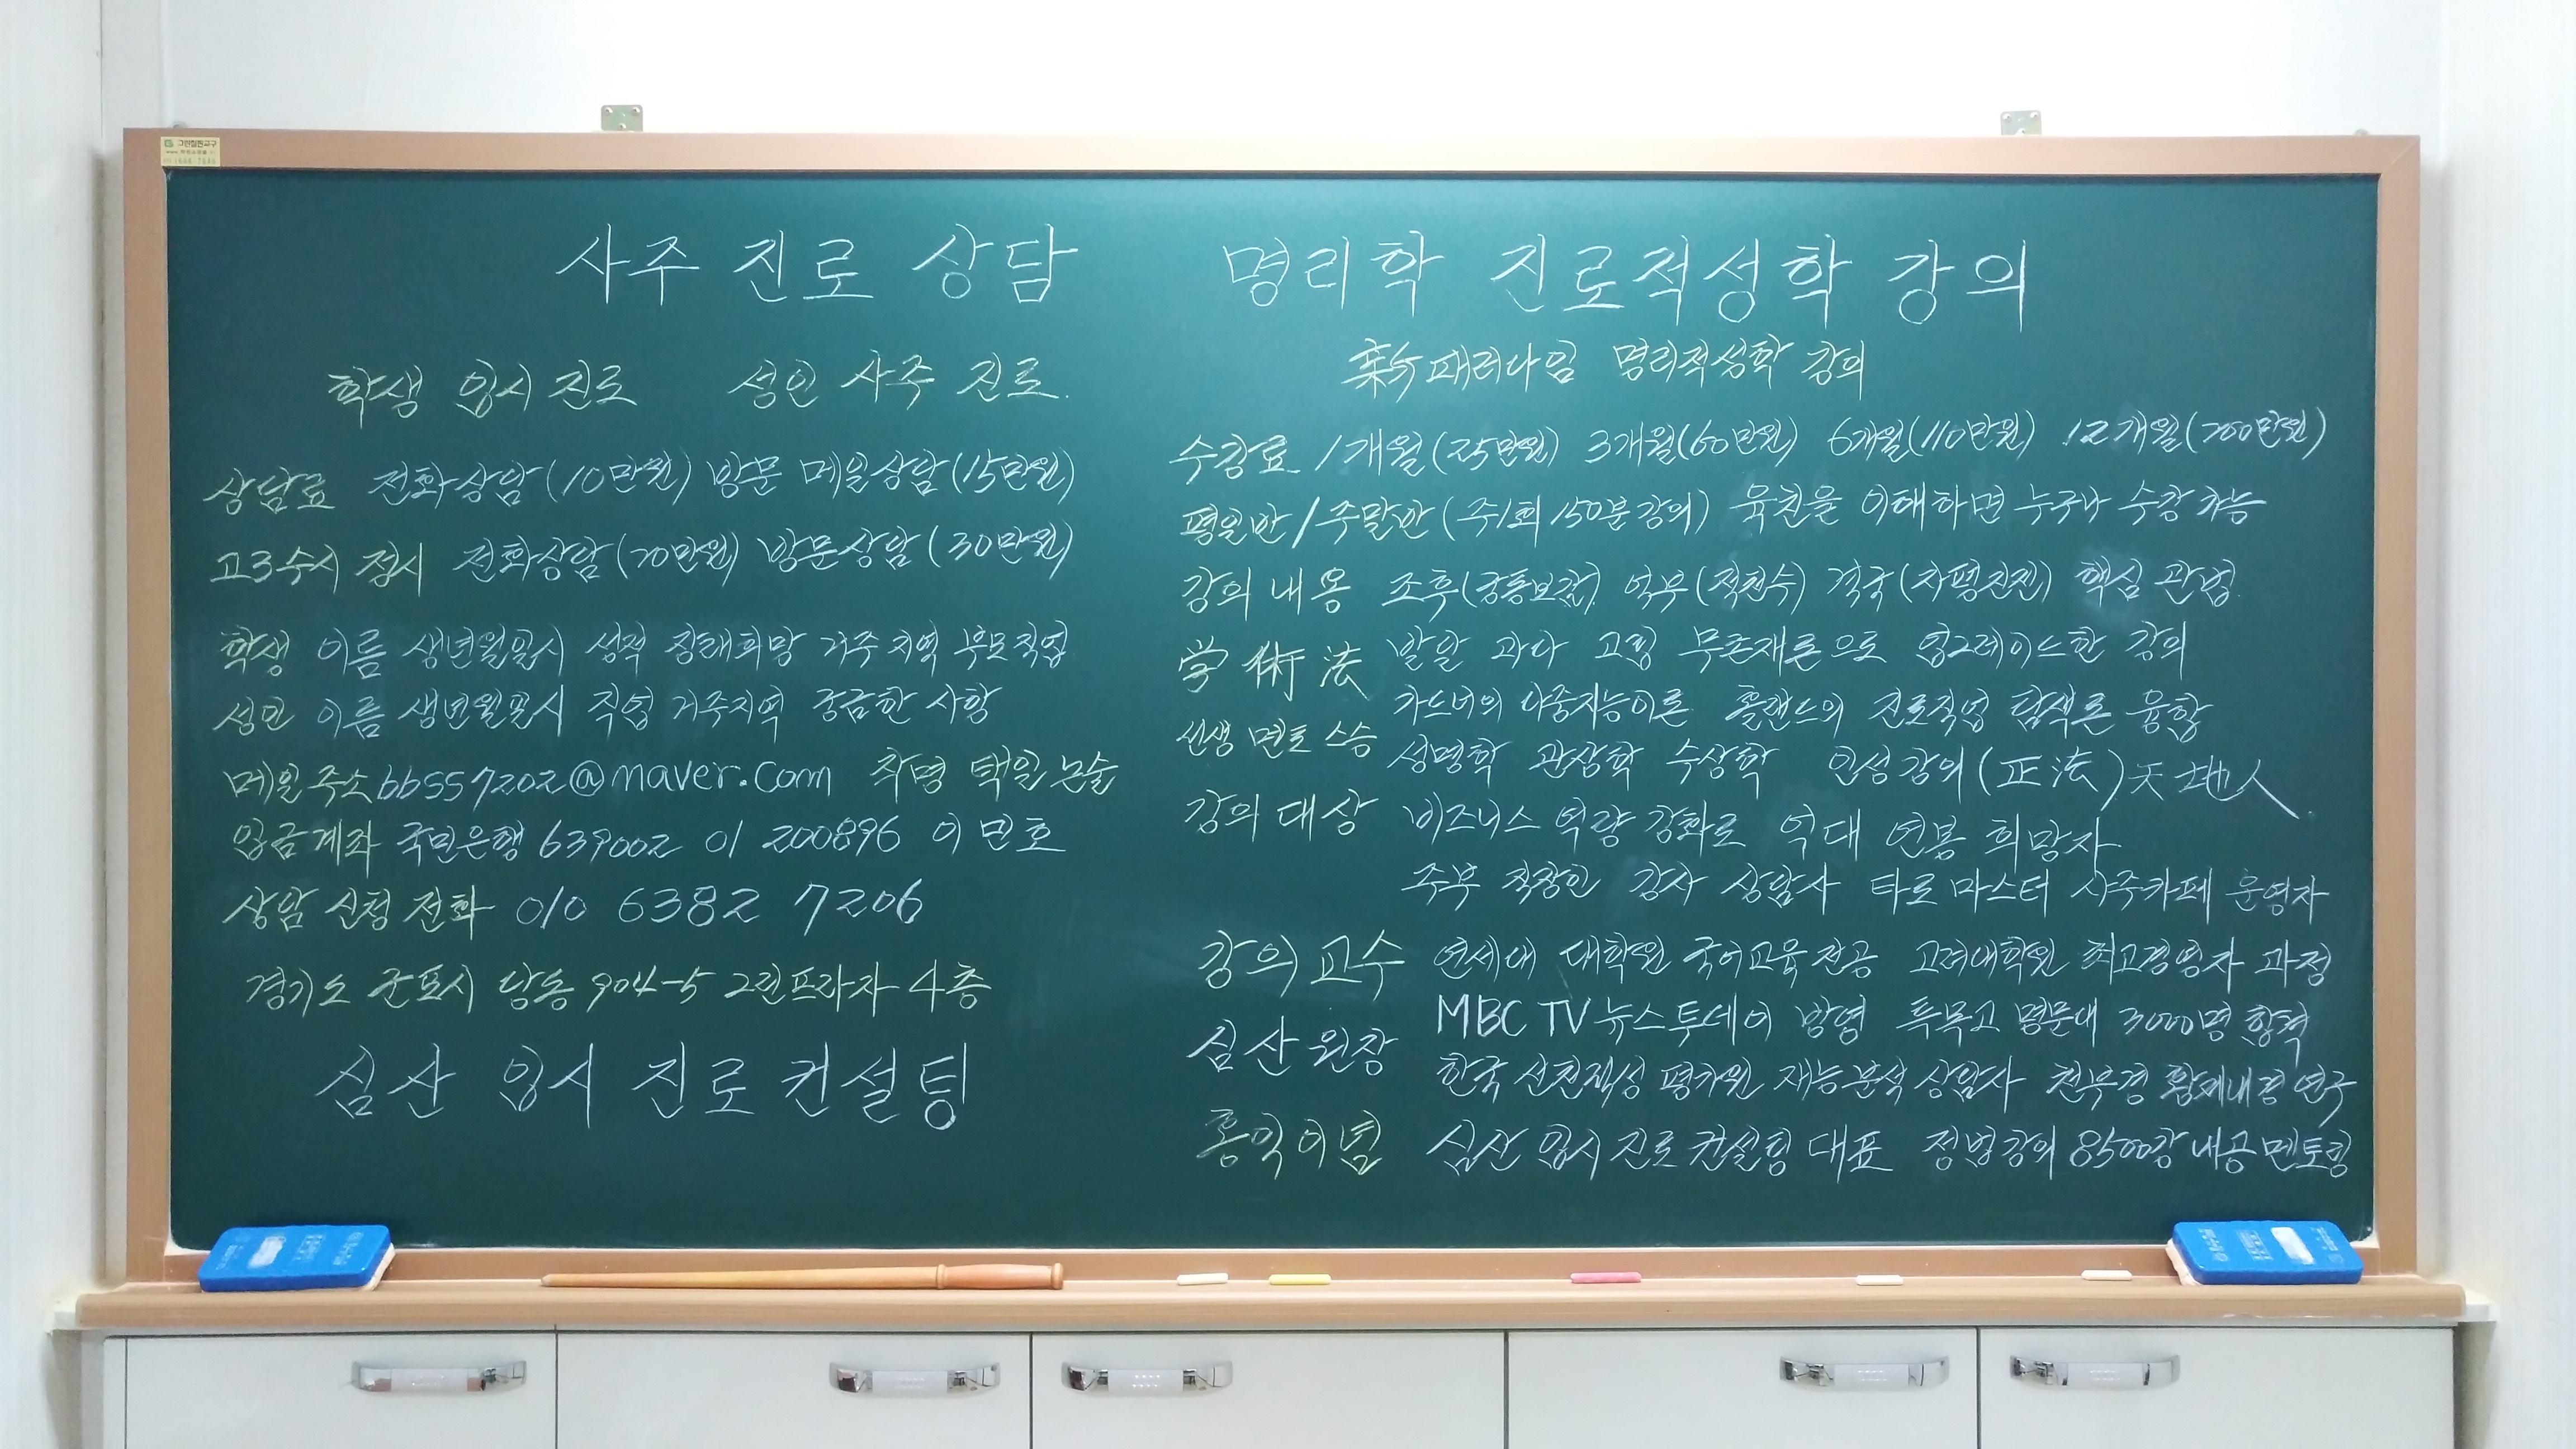 사주 진로 상담
학생 입시 진로 성인 사주 진로
상담료 전화상담(10만원) 방문 메일상담(15만원)
고3수시 정시 전화상담(20만원) 방문상담(30만원)
학생 이름 생년월일시 성적 장래희망 거주지역 부모직업
성인 이름 생년월일시 직업 거주지역 궁금한 사항
메일주소 bb557202@naver.com 작명 택일 논술
입금계좌 국민은행 639002 01 200896 이민호
상담 신청 전화 010 6382 7206
경기도 군포시 당동 904-5 그린프라자 4층
심산 입시 진로 컨설팅
명리학 진로적성학 강의
新패러다임 명리적성학 강의
수강료 1개월(25만원) 3개월(60만원) 6개월(110만원) 12개월(200만원)
평일반/주말반(주1회 150분강의) 육친을 이해하면 누구나 수강 가능
강의 내용 조후(궁통보감) 억부(적천수) 격국(자평진전) 핵심 관법
学術法 발달 과다 고립 무존재론으로 업그레이드한 강의
가드너의 다중지능이론 홀랜드의 진로직업 탐색론 융합
선생 멘토 스승 성명학 관상학 수상학 인성강의(正法)天地人
강의 대상 비즈니스 역량 강화로 억대 연봉 희망자
주부 직장인 강사 상담사 타로마스터 사주카페 운영자
강의 교수 연세대 대학원 국어교육전공 고려대학원 최고경영자 과정
심산 원장 MBC TV 뉴스투데이 방영 특목고 명문대 3000명 합격
한국 선천적성 평가원 재능분석 상담사 천부경 황제내경 연구
홍익이념 심산 입시 진로 컨설팅 대표 정법강의 8500강 내공 멘토링